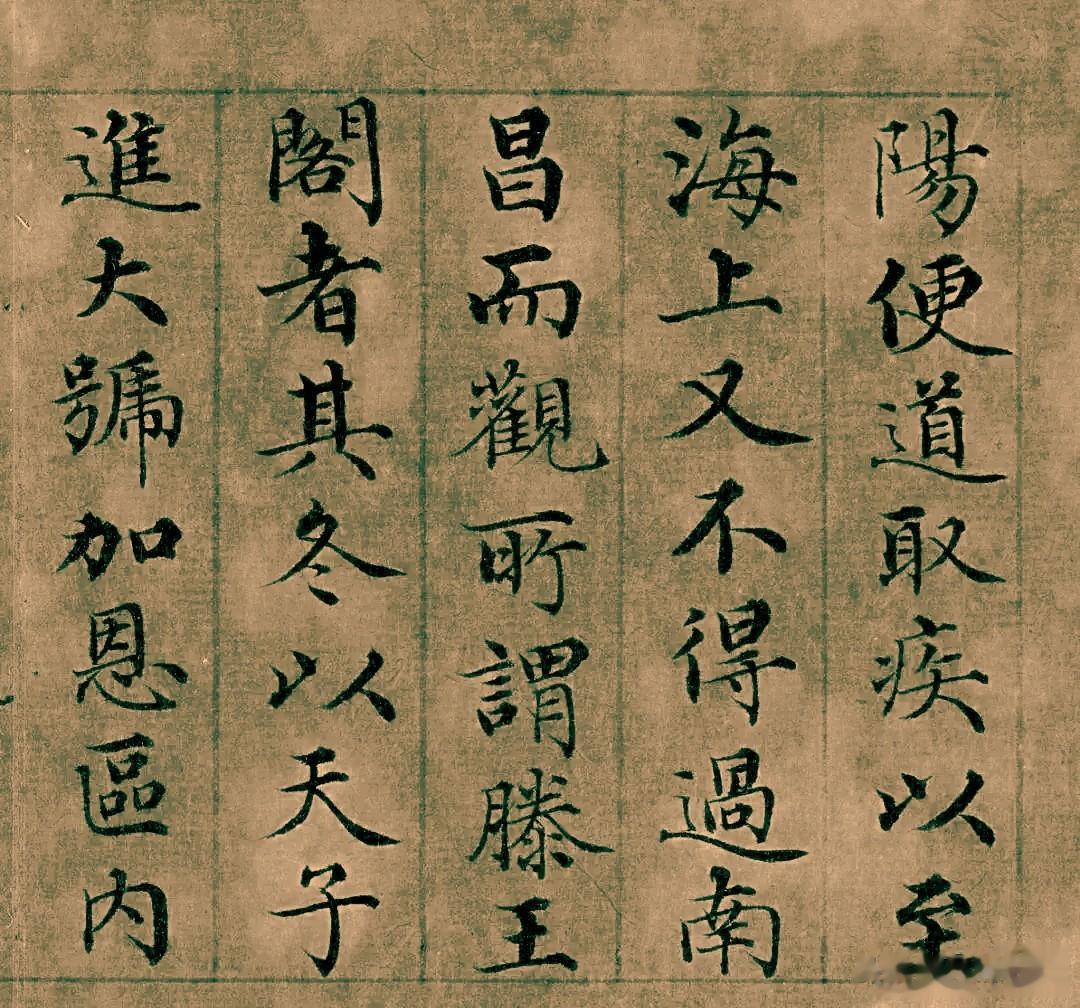 陽便道取疾以至
海上又不得過南
昌而觀所謂滕王
閣者其冬以天子
進大號加恩區内